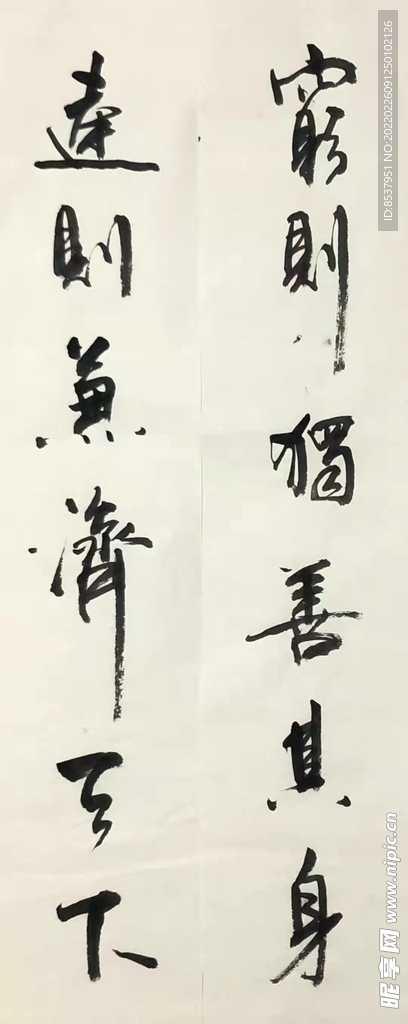 窮則獨善其身
達則兼濟天下
ID:8537951 NO:20220226091250102126
昵享网 www.nipic.cn